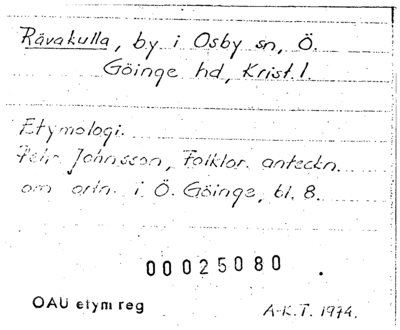 Rävakulla, by i Osby sn, Ö.
Göinge hd, Krist. l.
Etymologi.
Pehr Johnsson, Folklor. anteckn.
om ortn. i Ö. Göinge, bl. 8.
00025080
OAU etym reg
A-K.T. 1974.